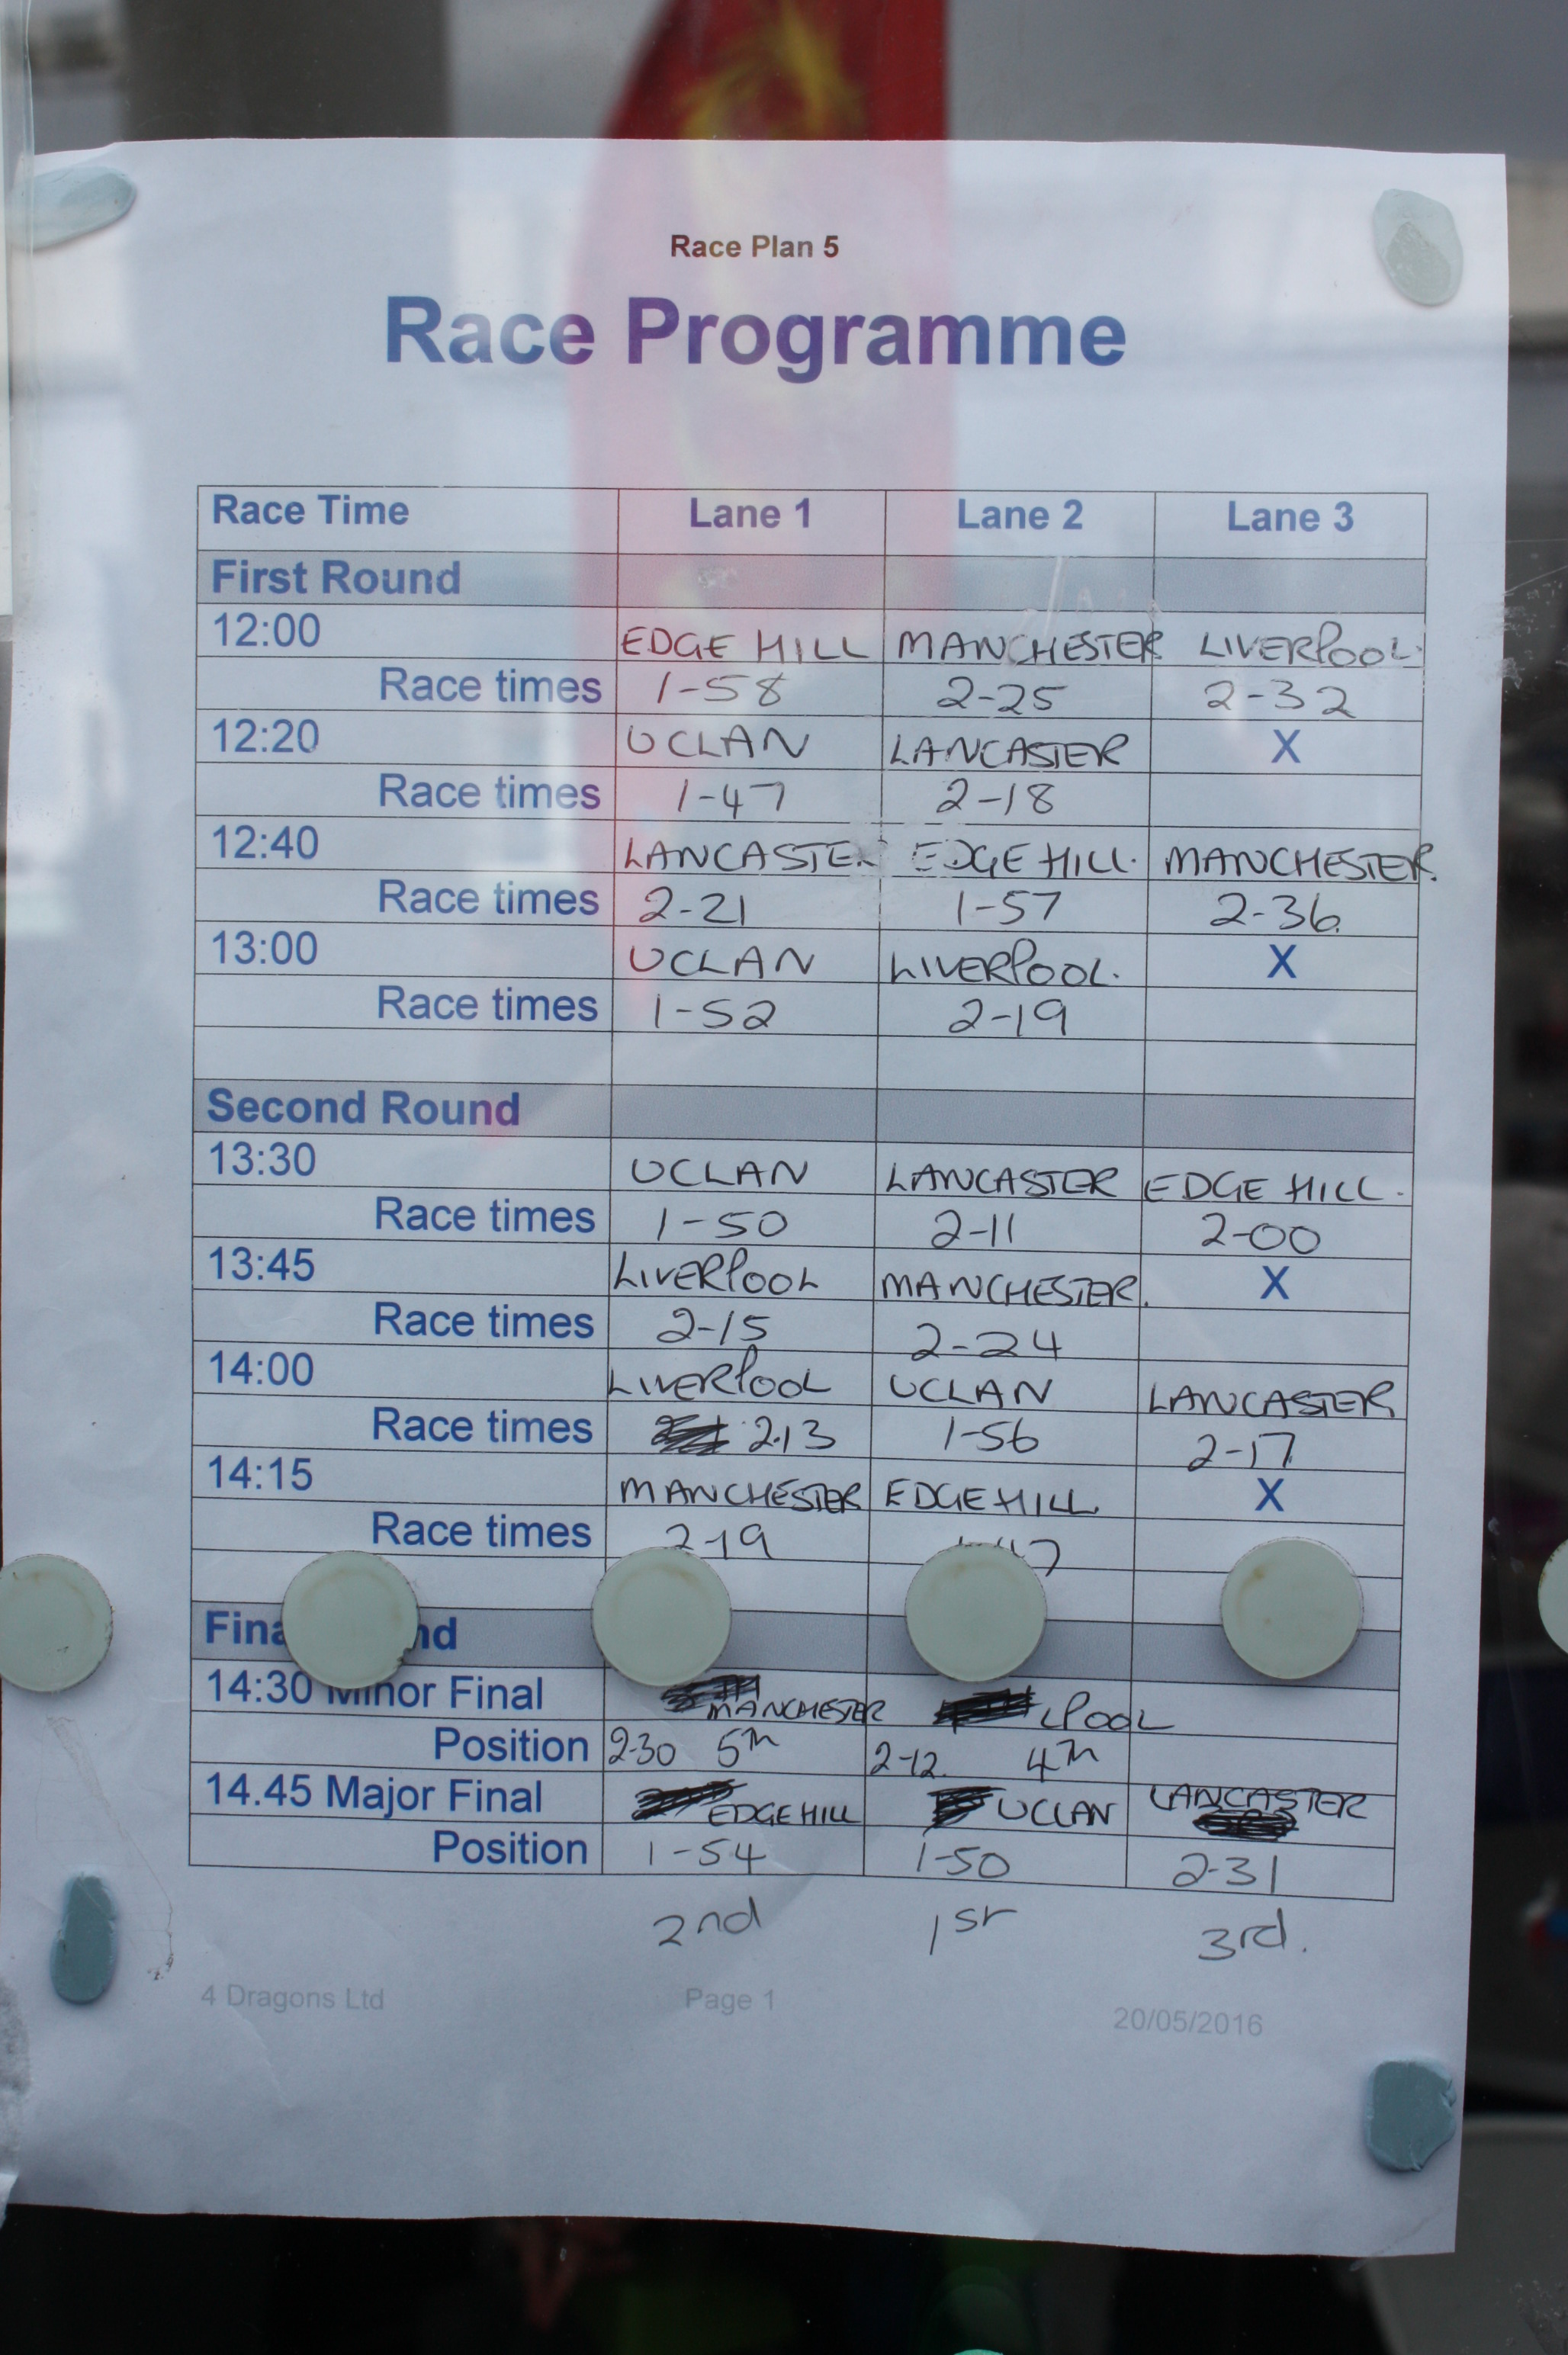 Race Plan 5
Race Programme
Race Time Lane 1 Lane 2 Lane 3
First Round
12:00 EDGE HILL MANCHESTER LIVERPOOL.
Race times 1-58 2-25 2-32
12:20 UCLAN LANCASTER X
Race times 1-47 2-18
12:40 LANCASTER EDGE HILL. MANCHESTER.
Race times 2-21 1-57 2-36.
13:00 UCLAN LIVERPOOL. X
Race times 1-52 2-19
Second Round
13:30 UCLAN LANCASTER EDGE HILL.
Race times 1-50 2-11 2-00
13:45 LIVERPOOL MANCHESTER. X
Race times 2-15 2-24
14:00 LIVERPOOL UCLAN LANCASTER
Race times 2.13 1-56 2-17
14:15 MANCHESTER EDGE HILL X
Race times 2-19
14:30 Minor Final MANCHESTER LPOOL
Position 2-30 5th 2-12. 4th
14.45 Major Final EDGE HILL UCLAN LANCASTER
Position 1-54 1-50 2-31
2nd 1st 3rd.
4 Dragons Ltd Page 1 20/05/2016